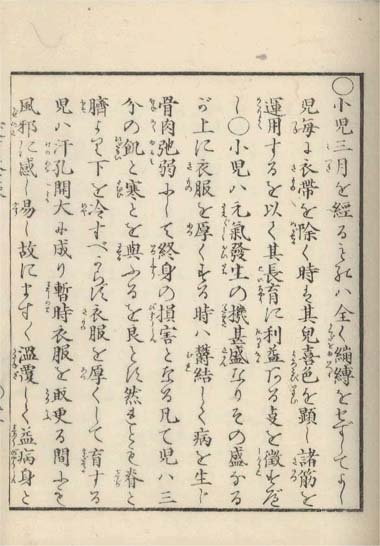 〇小児三月を経るときハ全く繃縛をせずしてよし
児毎に衣帯を除く時ハ其児喜色を顕し諸筋を
運用するを以て其長育に利益ある事を徴すべ
し〇小児ハ元氣發生の機甚盛なりその盛なる
が上に衣服を厚くする時ハ鬱結して病を生じ
骨肉弛弱にして終身の損害となる凡て児ハ三
分の飢と寒とを與ふるを良とす然れども脊と
臍より下を冷すべからす衣服を厚くして育する
児ハ汗孔開大に成り暫時衣服を取更る間にも
風邪に感し易し故にますます温覆して益病身と